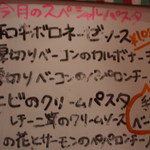 今月のスペシャルパスタ
和牛ボロネーゼソース
厚切りベーコンのカルボナー
厚切りベーコンのペペロンチー
エビのクリームパスタ
レチーニ茸のクリームソース
の花とサーモンのペペロン